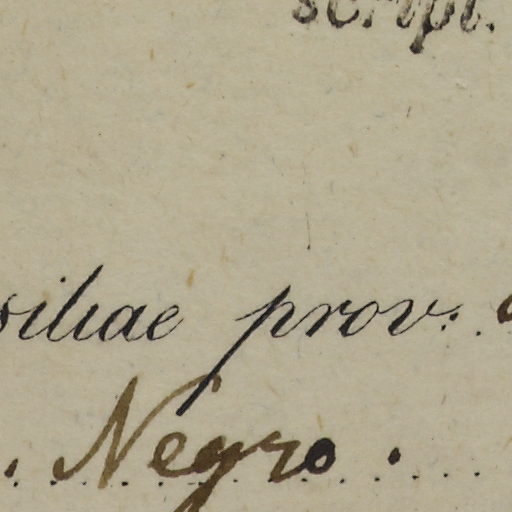 script.
siliae prov:
. Negro .